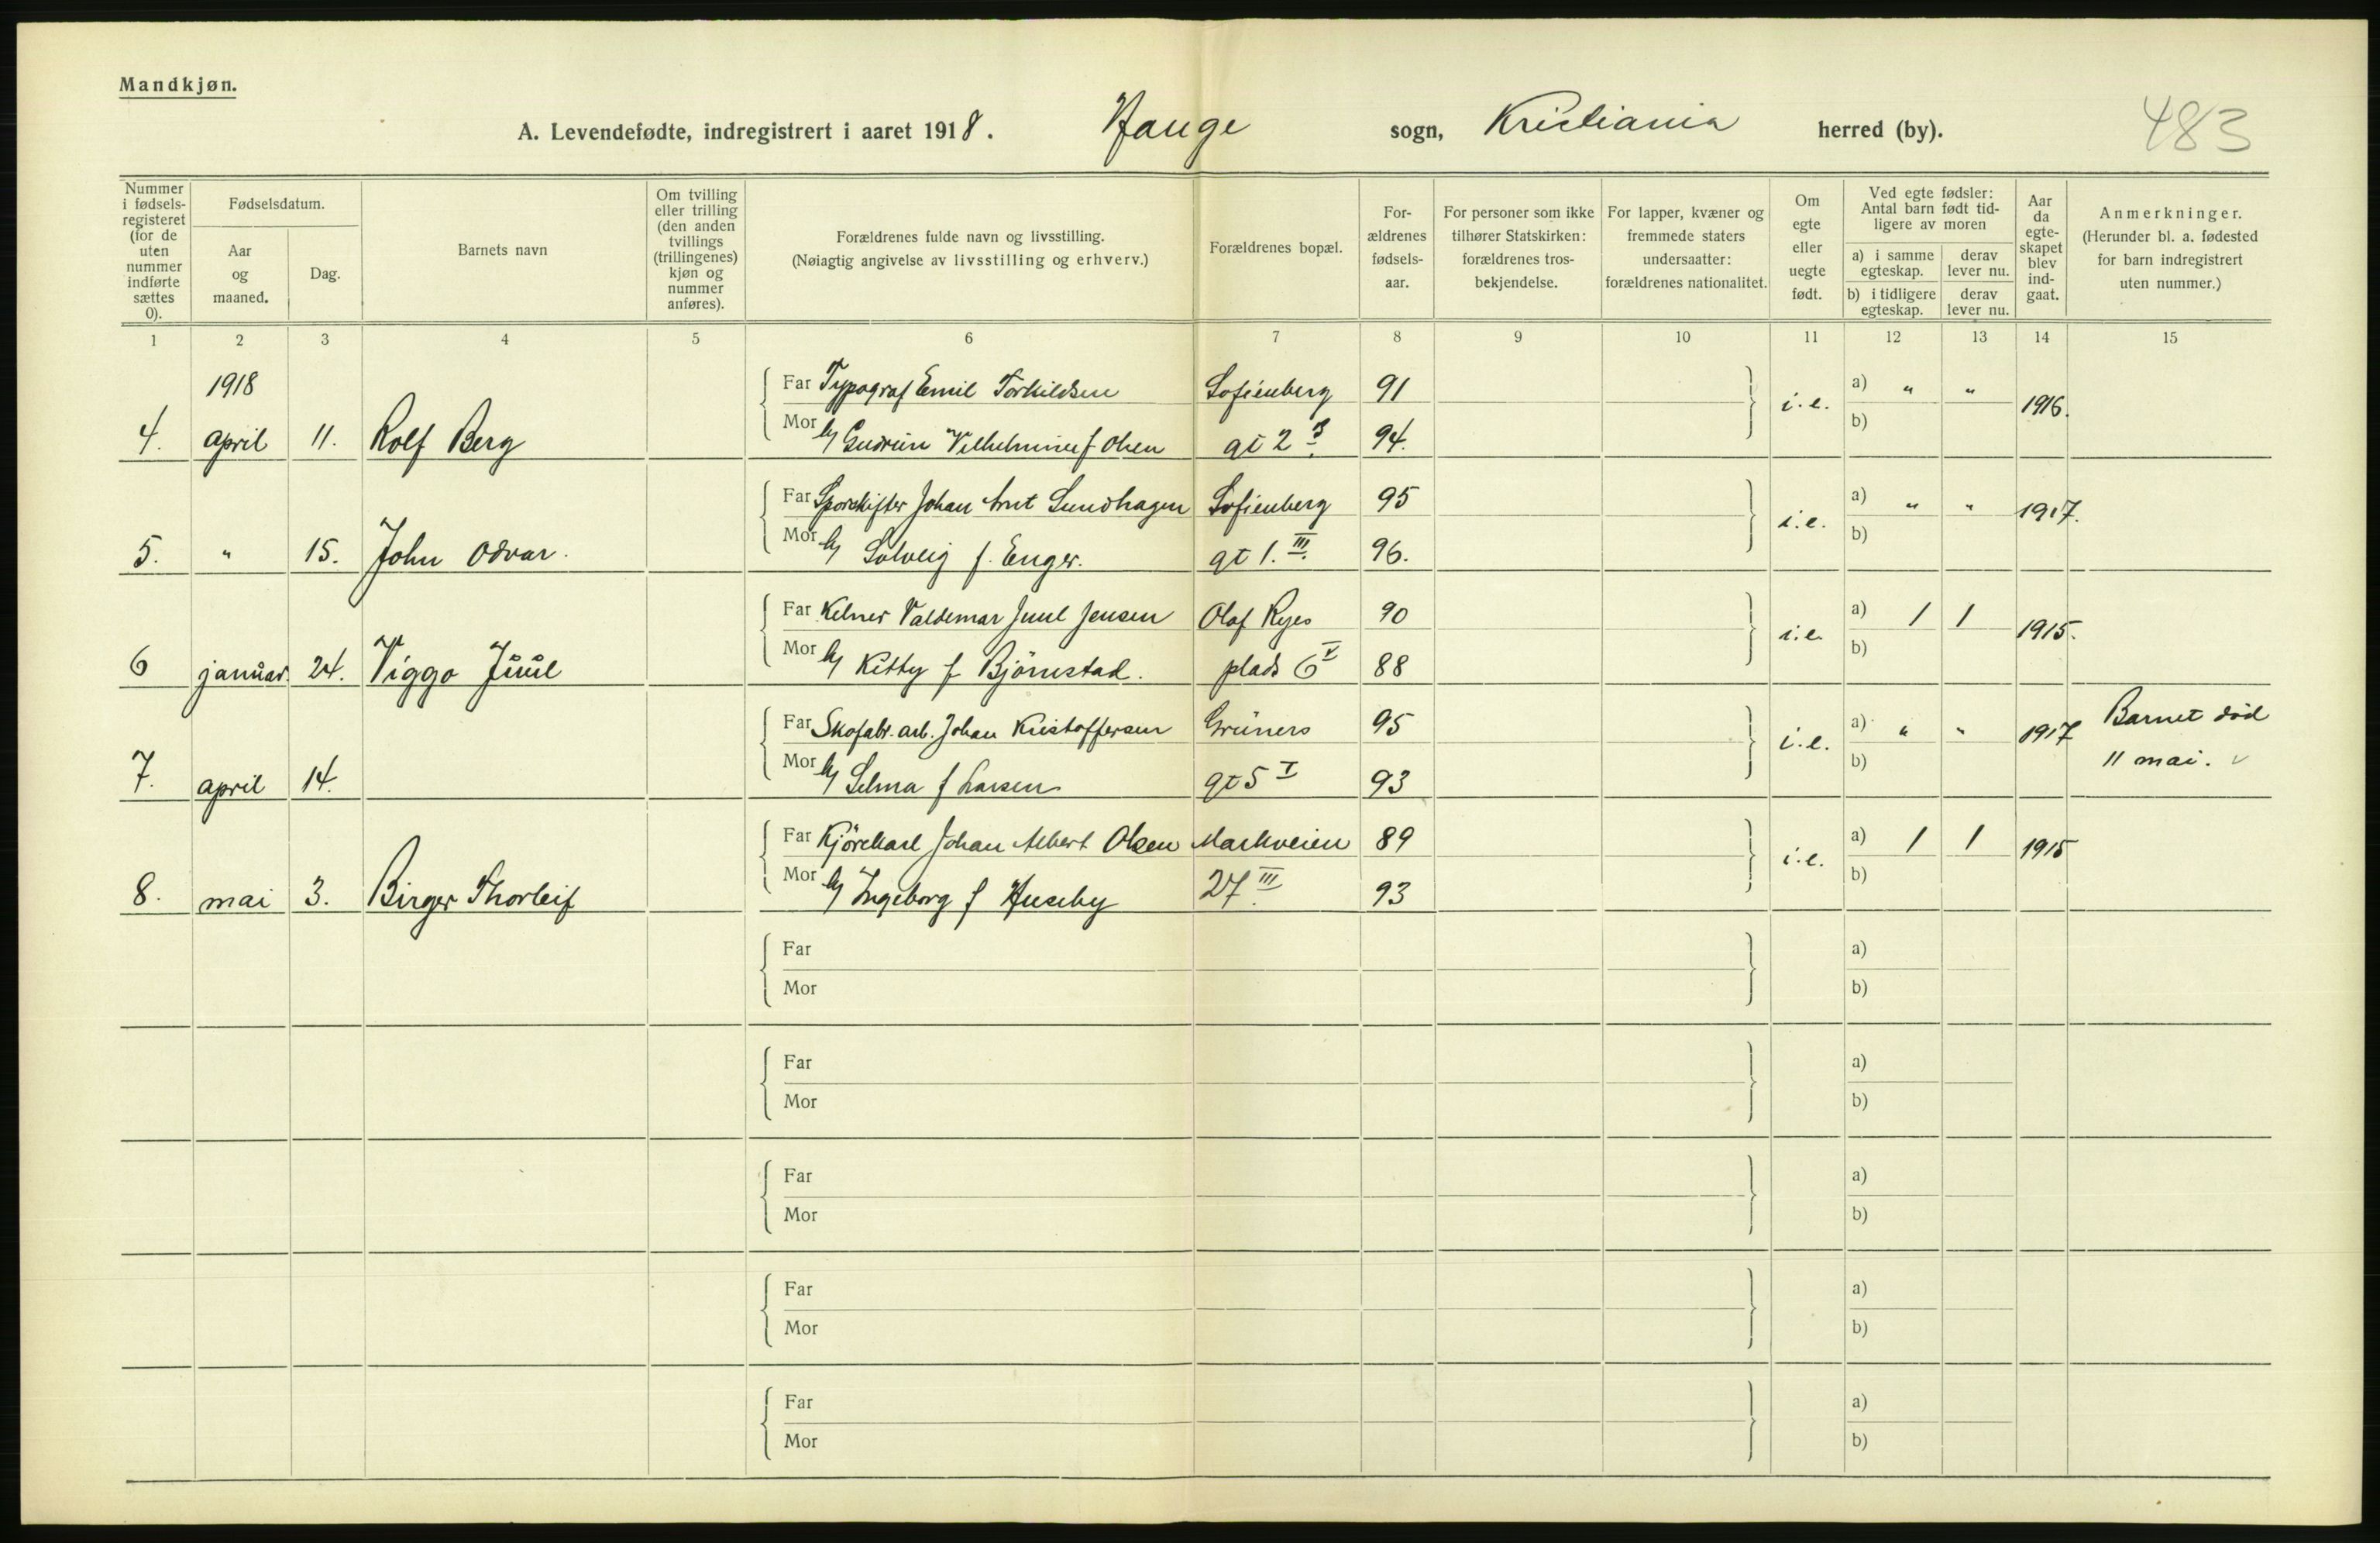 Mandkjøn.
A. Levendefødte, indregistrert i aaret 1918. Hauge sogn, Kristiania herred (by). 483
Nummer i fødsels-registeret (for de uten nummer indførte sættes 0).
Fødselsdatum.
Aar og maaned.
Dag.
Barnets navn
Om tvilling eller trilling (den anden tvillings (trillingenes) kjøn og nummer anføres).
Forældrenes fulde navn og livsstilling.
(Nøiagtig angivelse av livsstilling og erhverv.)
Forældrenes bopæl.
For-ældrenes fødsels-aar.
For personer som ikke tilhører Statskirken: forældrenes tros-bekjendelse.
For lapper, kvæner og fremmede staters undersaatter: forældrenes nationalitet.
Om egte eller uegte født.
Ved egte fødsler: Antal barn født tid-ligere av moren
a) i samme egteskap. derav lever nu.
b) i tidligere egteskap. derav lever nu.
Aar da egte-skapet blev ind-gaat.
Anmerkninger.
(Herunder bl. a. fødested for barn indregistrert uten nummer.)
1 2 3 4 5 6 7 8 9 10 11 12 13 14 15
1918 Far Typograf Emil Torkildsen Sofienberg 91 i.e. a) " " 1916.
4. april 11. Rolf Berg Mor h/ Gudrun Vilhelmine f Olsen gt 2 3. 94. b)
Far Sporskifter Johan Arnt Sundhagen Sofienberg 95 i.e. a) " " 1917.
5. " 15. John Odvar. Mor h/ Solveig f. Enger. gt 1. III. 96. b)
Far Kelner Valdemar Juul Jensen Olaf Ryes 90 i.e. a) 1 1 1915.
6 januar. 24. Viggo Juul Mor h/ Kitty f Björnstad. plads 6 V 88 b)
Far Skofabr. arb. Johan Kristoffersen Grüners 95 i.e. a) " " 1917 Barnet död
7. april 14. Mor h/ Selma f Larsen gt 5 I 93 b) 11 mai. v
Far Kjörekarl Johan Albert Olsen Markveien 89 i.e. a) 1 1 1915
8. mai 3. Birger Thorleif Mor h/ Ingeborg f Huseby 27 III. 93 b)
Far a)
Mor b)
Far a)
Mor b)
Far a)
Mor b)
Far a)
Mor b)
Far a)
Mor b)